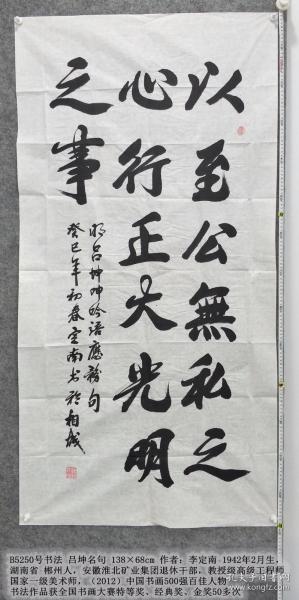 以至公無私之
心行正大光明
之事
明吕坤呻吟语應務句
癸巳年初春定南书於相城
B5250号书法 吕坤名句 138×68cm 作者：李定南 1942年2月生，
湖南省 郴州人，安徽淮北矿业集团退休干部，教授级高级工程师
国家一级美术师，（2012）中国书画500强百佳人物
书法作品获全国书画大赛特等奖、经典奖、金奖50多次